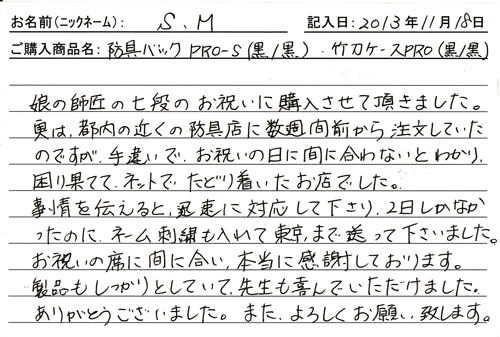 お名前(ニックネーム): S.M 記入日: 2013年11月18日
ご購入商品名: 防具バック PRO-S (黒/黒) ・竹刀ケースPRO (黒/黒)
娘の師匠の七段のお祝いに購入させて頂きました。
実は、都内の近くの防具店に数週間前から注文していた
のですが、手違いで、お祝いの日に間に合わないとわかり、
困り果てて、ネットでたどり着いたお店でした。
事情を伝えると、迅速に対応して下さり、2日しかなか
ったのに、ネーム刺繍も入れて東京まで送って下さいました。
お祝いの席に間に合い、本当に感謝しております。
製品もしっかりとしていて、先生も喜んでいただけました。
ありがとうございました。また、よろしくお願い致します。